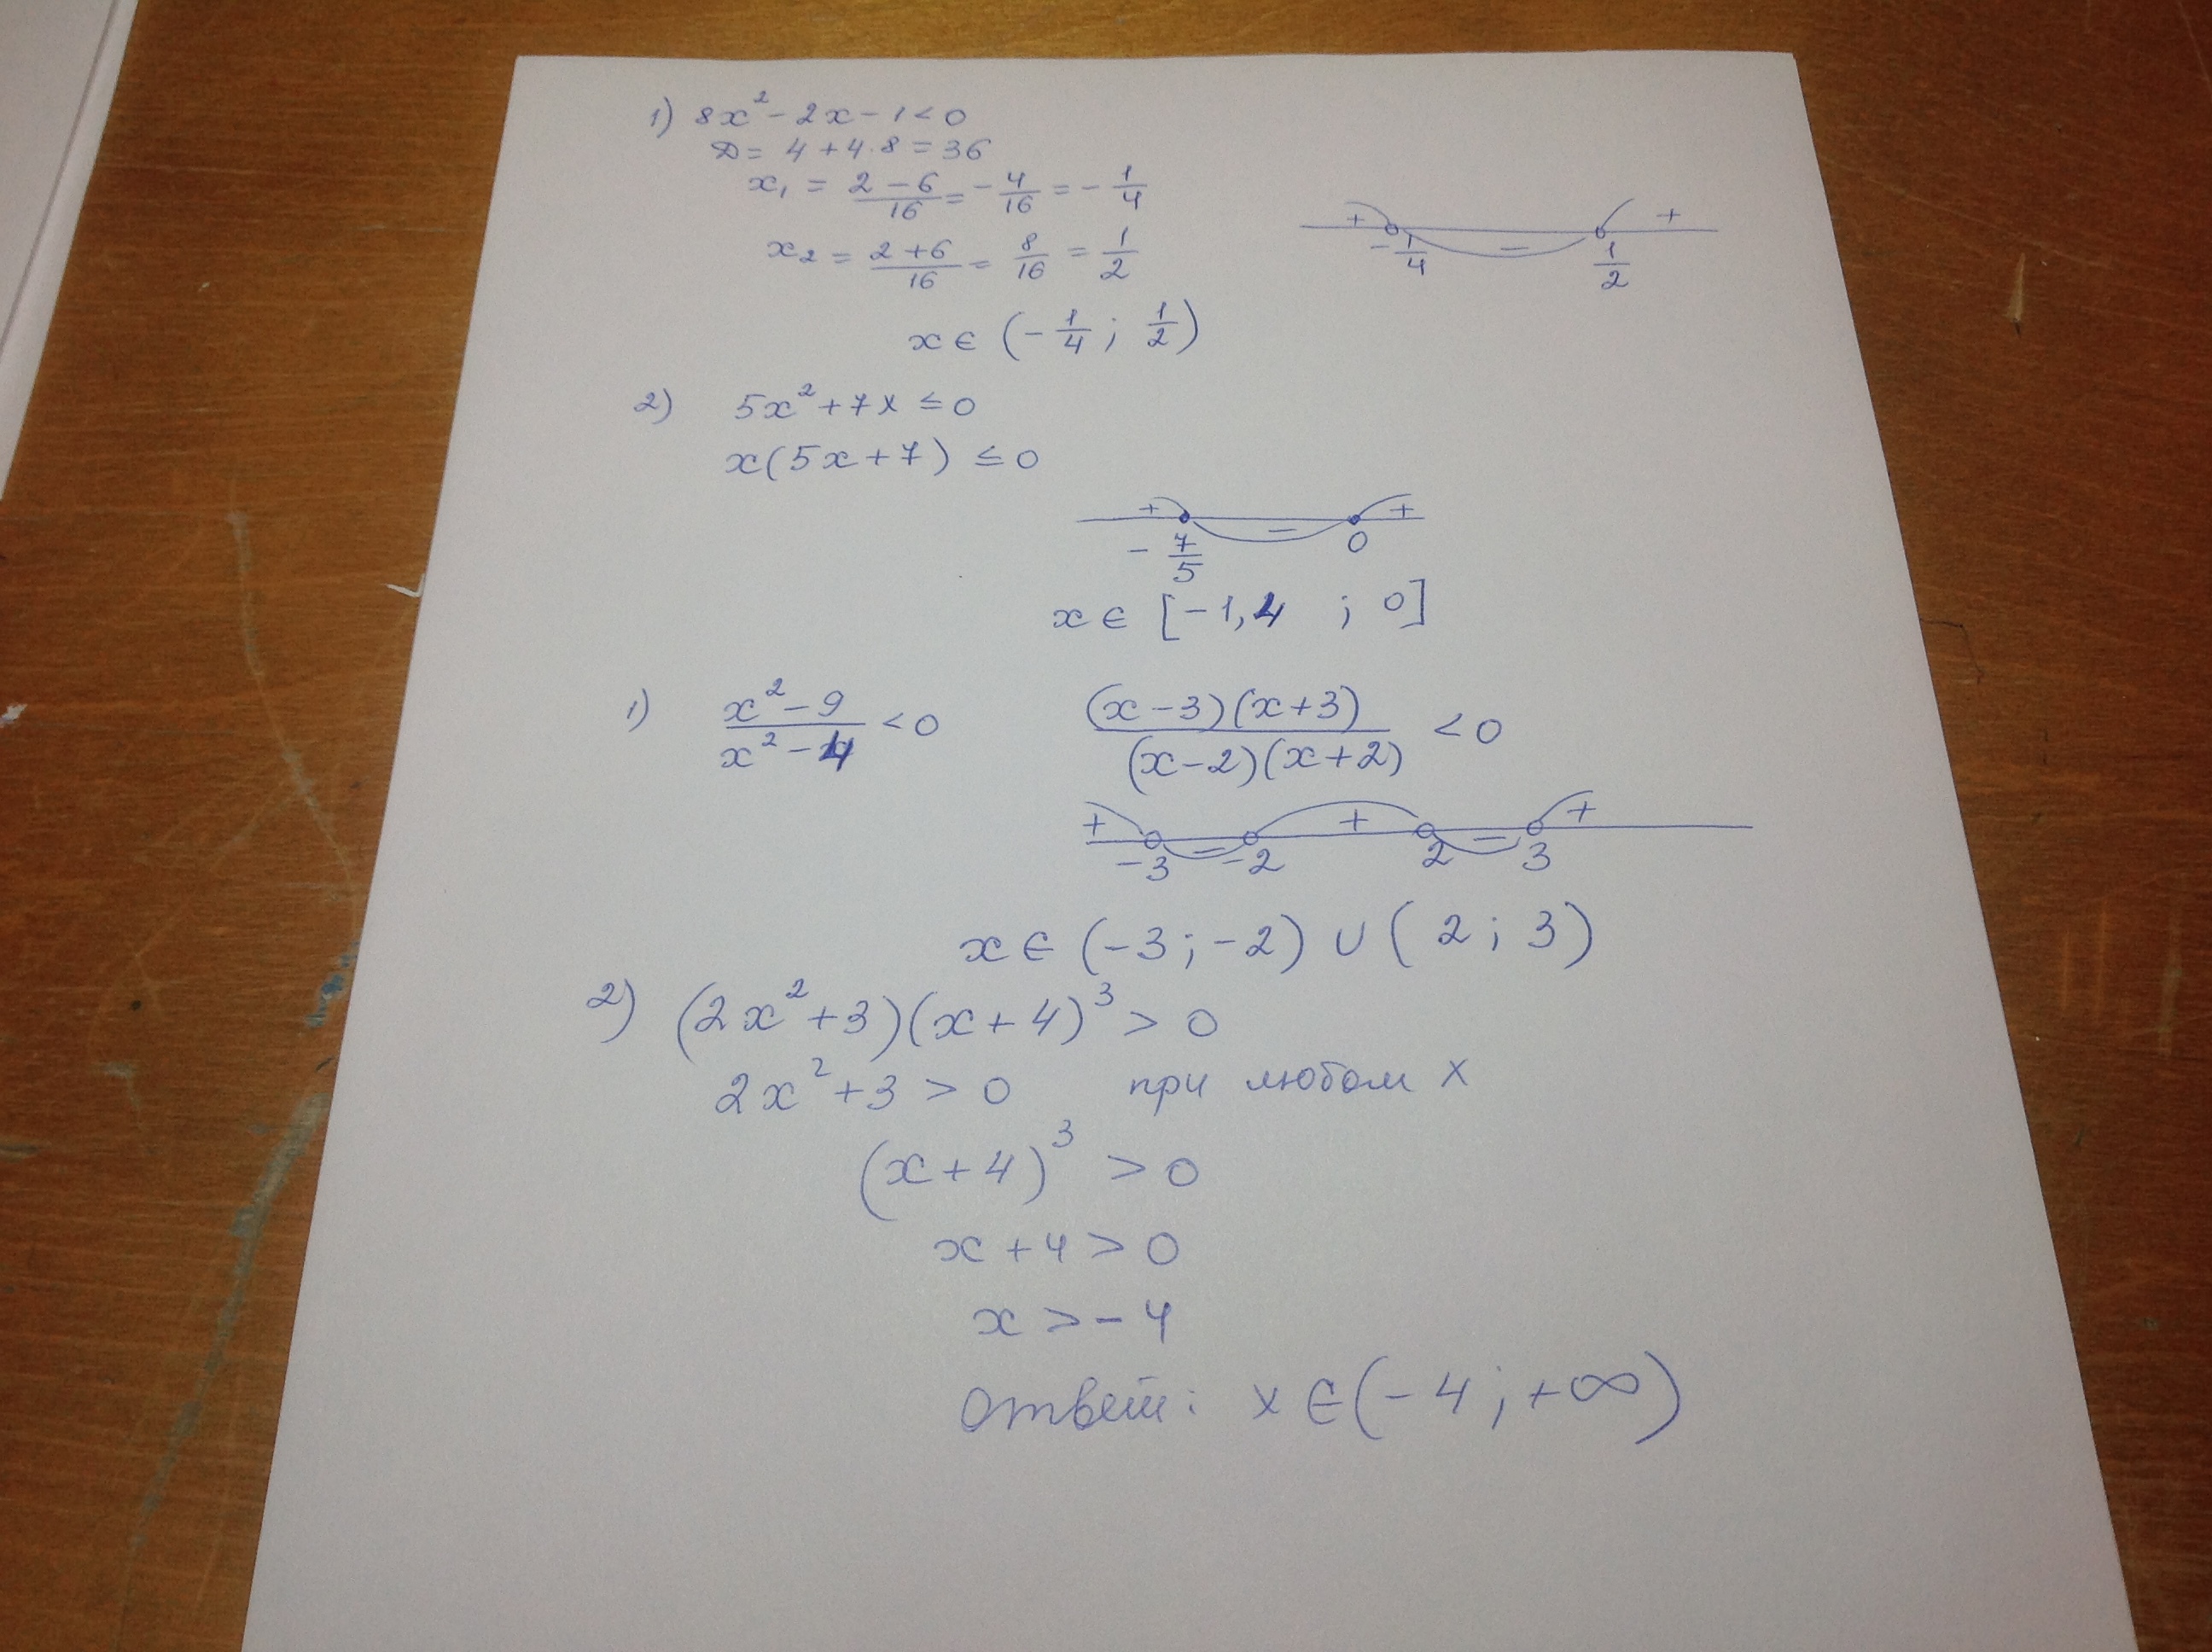 1) 8x² - 2x - 1 < 0
D = 4 + 4·8 = 36
x₁ = (2 - 6)/16 = - 4/16 = - 1/4
+ - +
- 1/4 1/2
x₂ = (2 + 6)/16 = 8/16 = 1/2
x ∈ (- 1/4 ; 1/2)
2) 5x² + 7x ≤ 0
x(5x + 7) ≤ 0
+ - +
- 7/5 0
x ∈ [-1,4 ; 0]
1) (x² - 9)/(x² - 4) < 0 (x - 3)(x + 3)/(x - 2)(x + 2) < 0
+ - + - +
-3 -2 2 3
x ∈ (-3 ; -2) ∪ (2 ; 3)
2) (2x² + 3)(x + 4)³ > 0
2x² + 3 > 0 при любом x
(x + 4)³ > 0
x + 4 > 0
x > - 4
Ответ: x ∈ (- 4 ; +∞)